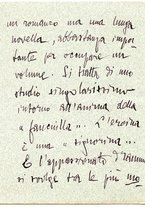 un romanzo ma una lunga
novella, abbastanza impor
tante per occupare un
volume. Si tratta di uno
studio singolarissimo
intorno all'anima della
"fanciulla". L'eroina
è una "signorina".
E l'appassionato dramma
si svolge tra le più